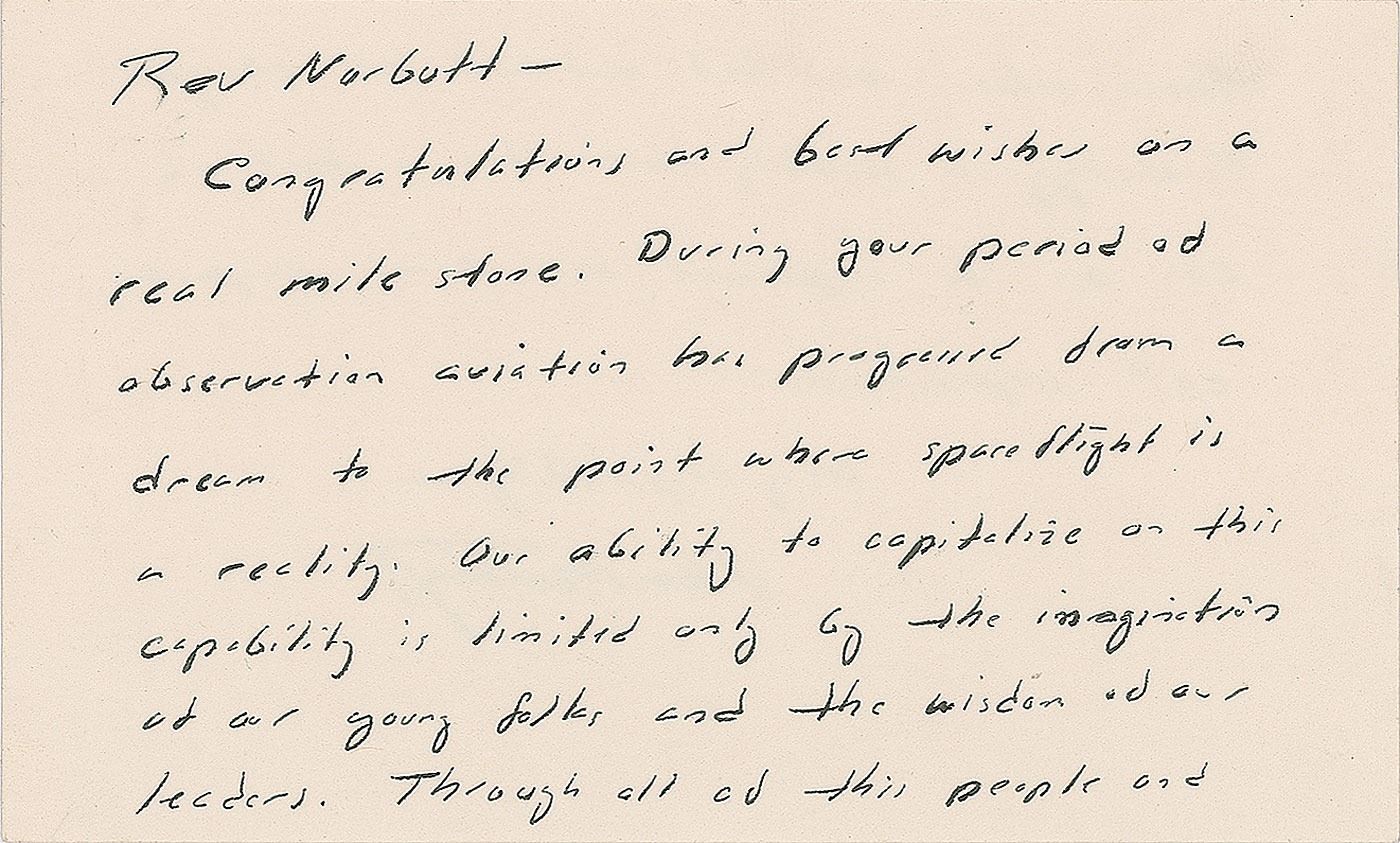 Rev Norbutt —
Congratulations and best wishes on a
real mile stone. During your period of
observation aviation has progressed from a
dream to the point where space flight is
a reality. Our ability to capitalize on this
capability is limited only by the imagination
of our young folks and the wisdom of our
leaders. Through all of this people and